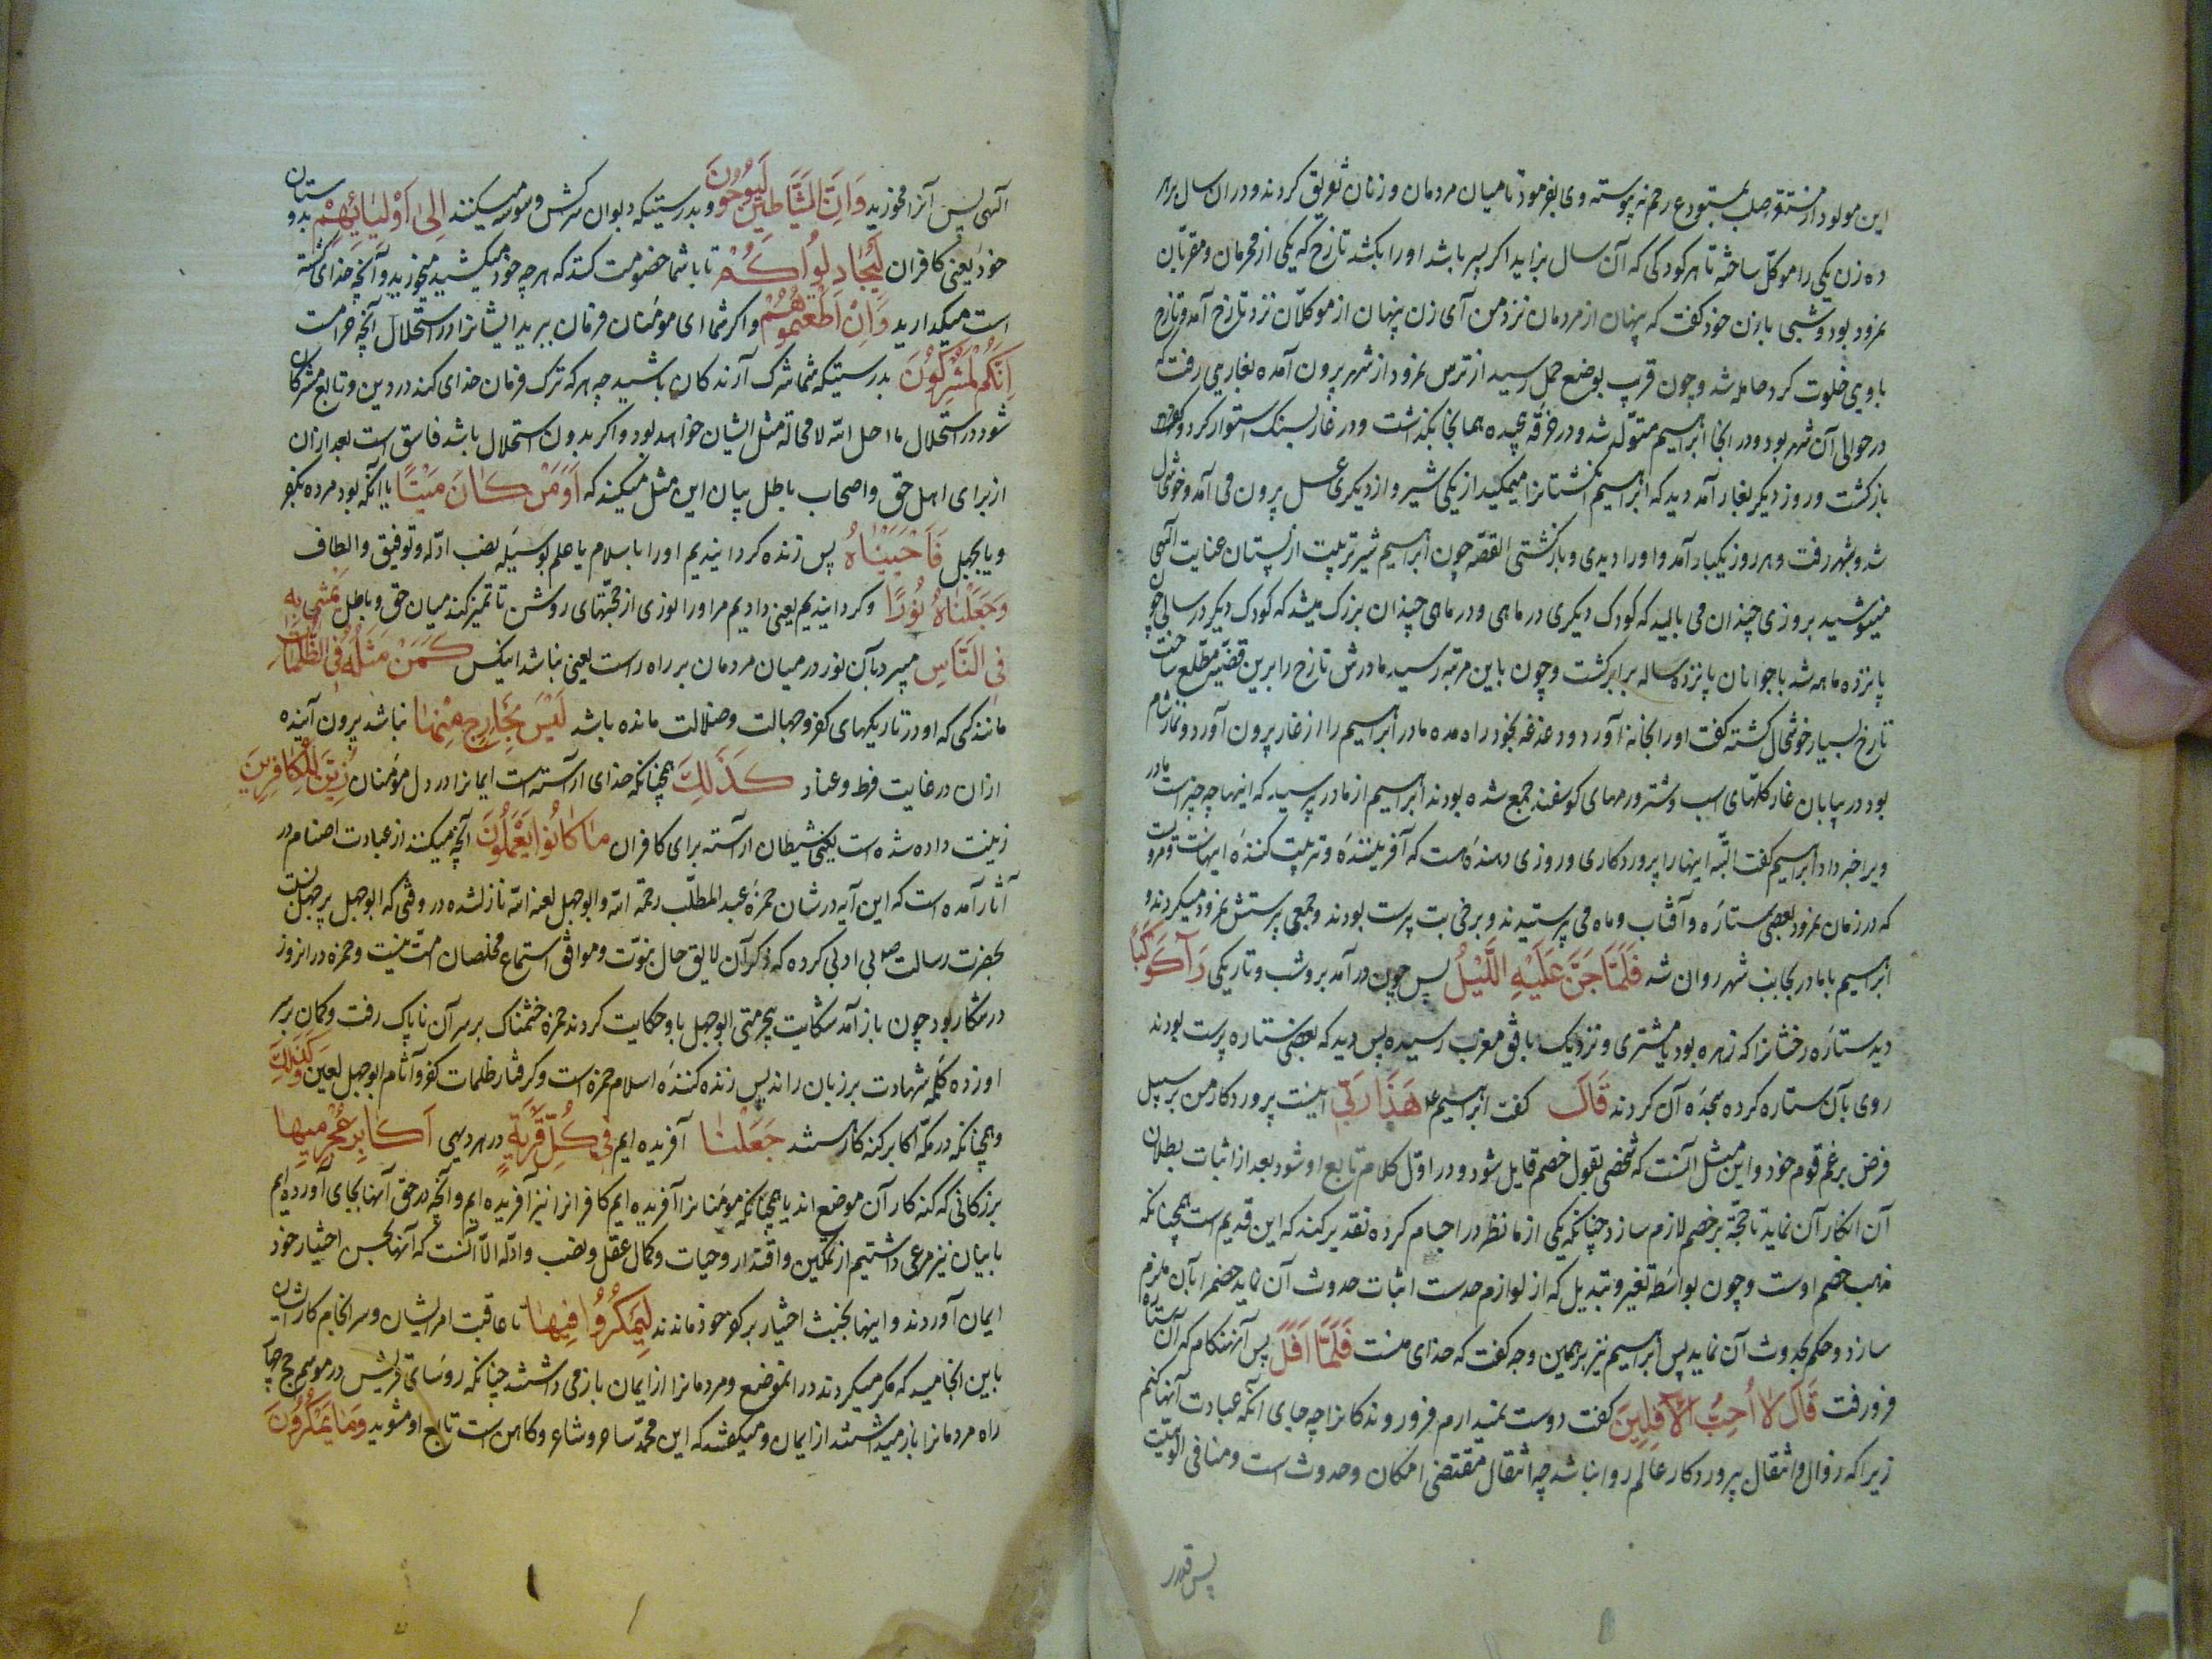 این مولود از مستقر صلب بمستودع رحم نه پیوسته وی بفرمود تا میان مردمان و زنان تفریق کردند و در آن سال بر هر
ده زن یکی را موکل ساخته تا هر کودکی که آن سال بزاید اگر پسر باشد او را بکشد تارخ که یکی از محرمان و مقربان
نمرود بود و شبی بازن خود گفت که پنهان از مردمان نزد من آی زن پنهان از موکلان نزد تارخ آمد و تارخ
با وی خلوت کرد حامله شد و چون قریب بوضع حمل رسید از ترس نمرود از شهر بیرون آمده بغاریی رفت که
در حوالی آن شهر بود و در انجا ابراهیم متولد شد و در خرقه پیچیده همانجا بگذاشت و در غار بسنک استوار کرد و
بازکشت و روز دیگر بغار آمد دید که ابراهیم انگشتانرا میمکید از یکی شیر و از دیگری عسل بیرون می آمد و خوشدل
شد و بشهر رفت و هر روز یکبار آمد و او را دیدی و بازکشتی القصه چون ابراهیم شیر تربیت از پستان عنایت الهی
مینوشید بروزی چندان می بالید که کودک دیگری در ماهی و در ماهی چندان بزرک میشد که کودک دیگر در سالی چون
پانزده ماهه شد با جوانان پانزده ساله برابر کشت و چون باین مرتبه رسید مادرش تارخ را برین قضیه مطلع ساخت
تارخ بسیار خوشحال کشته گفت او را بخانه آور و دغدغه بخود راه مده مادر ابراهیم را از غار بیرون آورد و نماز شام
بود در بیابان غار کلهای اسب و شتر و رمهای کوسفند جمع شده بودند ابراهیم از مادر پرسید که اینها چه چیز است مادر
ویرا خبر داد ابراهیم گفت البته اینها را پروردکاری و روزی دهنده هست که آفریننده و تربیت کننده اینهاست
که در زمان نمرود بعضی ستاره و آفتاب و ماه می پرستیدند و برخی بت پرست بودند و جمعی پرستش نمرود میکردند و
ابراهیم با مادر بجانب شهر روان شد فَلَمَّا جَنَّ عَلَيْهِ اللَّيْلُ پس چون درآمد برو شب و تاریکی رَآ كَوْكَبًا
دید ستاره رخشانرا که زهره بود یا مشتری و نزدیک بافق مغرب رسیده پس دید که بعضی ستاره پرست بودند
روی بآن ستاره کرده سجده آن کردند قَالَ گفت ابراهیم ع هَذَا رَبِّي اینست پروردکار من بر سبیل
فرض بر زعم قوم خود و این مثل آنست که شخصی بقول خصم قایل شود و در اول کلام تابع او شود بعد از اثبات بطلان
آن انکار آن نماید تا حجة بر خصم لازم سازد چنانکه یکی از ما نظر در اجسام کرده تقدیر کند که این قدیم است همچنانکه
مذهب خصم اوست و چون بواسطه تغیر و تبدیل که از لوازم حدست اثبات حدوث آن نماید خصم را بآن ملزم
سازد و حکم بحدوث آن نماید پس ابراهیم نیز برهمین وجه گفت که خدای منست فَلَمَّا أَفَلَ پس آنهنکام که آن ستاره
فرو رفت قَالَ لَا أُحِبُّ الْآفِلِينَ گفت دوست نمیدارم فرو روندکانرا چه جای آنکه عبادت آنها کنم
زیرا که زوال و انتقال پروردکار عالم روا نباشد چه انتقال مقتضی امکان و حدوث است و منافی الوهیت
پس قدر
الهی پس آنرا مخورید وَإِنَّ الشَّيَاطِينَ لَيُوحُونَ و بدرستیکه دیوان سرکش وسوسه میکنند إِلَى أَوْلِيَائِهِمْ بدوستان
خود یعنی کافران لِيُجَادِلُوكُمْ تا با شما خصومت کنند که هر چه خود میکشید میخورید و آنچه خدای کشته
است میکذارید وَإِنْ أَطَعْتُمُوهُمْ و اکر شما ای مومنان فرمان ببرید ایشانرا در استحلال آنچه حرامست
إِنَّكُمْ لَمُشْرِكُونَ بدرستیکه شما شرک آرندکان باشید چه هر که ترک فرمان خدای کند در دین و تابع مشرکان
شود در استحلال ما احل الله لا محاله مثل ایشان خواهد بود و اکر بدون استحلال باشد فاسق است بعد ازان
از برای اهل حق و اصحاب باطل بیان این مثل میکند که أَوَمَنْ كَانَ مَيْتًا یا آنکه بود مرده بکفر
و یا بجهل فَأَحْيَيْنَاهُ پس زنده کردانیدیم او را باسلام یا علم بوسیله نصب ادله و توفیق و الطاف
وَجَعَلْنَا لَهُ نُورًا و کردانیدیم یعنی دادیم مر او را نوری از حجتهای روشن تا تمیز کند میان حق و باطل يَمْشِي بِهِ
فِي النَّاسِ میرود بآن نور در میان مردمان بر راه راست یعنی نباشد اینکس كَمَنْ مَثَلُهُ فِي الظُّلُمَاتِ
مانند کسی که او در تاریکیهای کفر و جهالت و ضلالت مانده باشد لَيْسَ بِخَارِجٍ مِنْهَا نباشد بیرون آینده
ازان در غایت فرط و عناد كَذَلِكَ همچنانکه خدای آراسته است ایمانرا در دل مومنان زُيِّنَ لِلْكَافِرِينَ
زینت داده شده است یعنی شیطان آراسته برای کافران مَا كَانُوا يَعْمَلُونَ آنچه میکنند از عبادت اصنام در
آثار آمده است که این آیه در شان حمزه عبد المطلب رحمه الله و ابوجهل لعنه الله نازل شده در وقتی که ابوجهل پرجهل نسبت
بحضرت رسالت ص بی ادبی کرده که ذکر آن لایق حال نبوت و موافق استماع مخلصان امت نیست و حمزه در انروز
در شکار بود چون باز آمد شکایت بیحرمتی ابوجهل باو حکایت کردند حمزه خشمناک بر سر آن ناپاک رفت و کمان بر سر
او زده کلمه شهادت بر زبان راند پس زنده کننده اسلام حمزه است و کرفتار ظلمات کفر و آثام ابوجهل لعین وَكَذَلِكَ
و همچنانکه در مکه اکابر کنه کار هستند جَعَلْنَا آفریده ایم فِي كُلِّ قَرْيَةٍ در هر دیهی أَكَابِرَ مُجْرِمِيهَا
بزرکانی که کنه کار آن موضع اند یا همچنانکه مومنانرا آفریده ایم کافرانرا نیز آفریده ایم و آنچه در حق آنها بجای آورده ایم
با بیان نیز مرعی داشتیم از تمکین و اقتدار و حیات و کمال عقل و نصب و ادله الا آنست که آنها بحسن اختیار خود
ایمان آوردند و اینها بخبث اختیار بر کفر خود ماندند لِيَمْكُرُوا فِيهَا تا عاقبت امر ایشان و سرانجام کار ایشان
باین انجامید که مکر میکردند در انموضع و مردمانرا از ایمان باز می داشتند چنانکه روسای قریش در موسم حج
راه مردمانرا باز میداشتند از ایمان و میکفتند که این محمد ساحر و شاعر و کاهن است تابع او مشوید وَمَا يَمْكُرُونَ